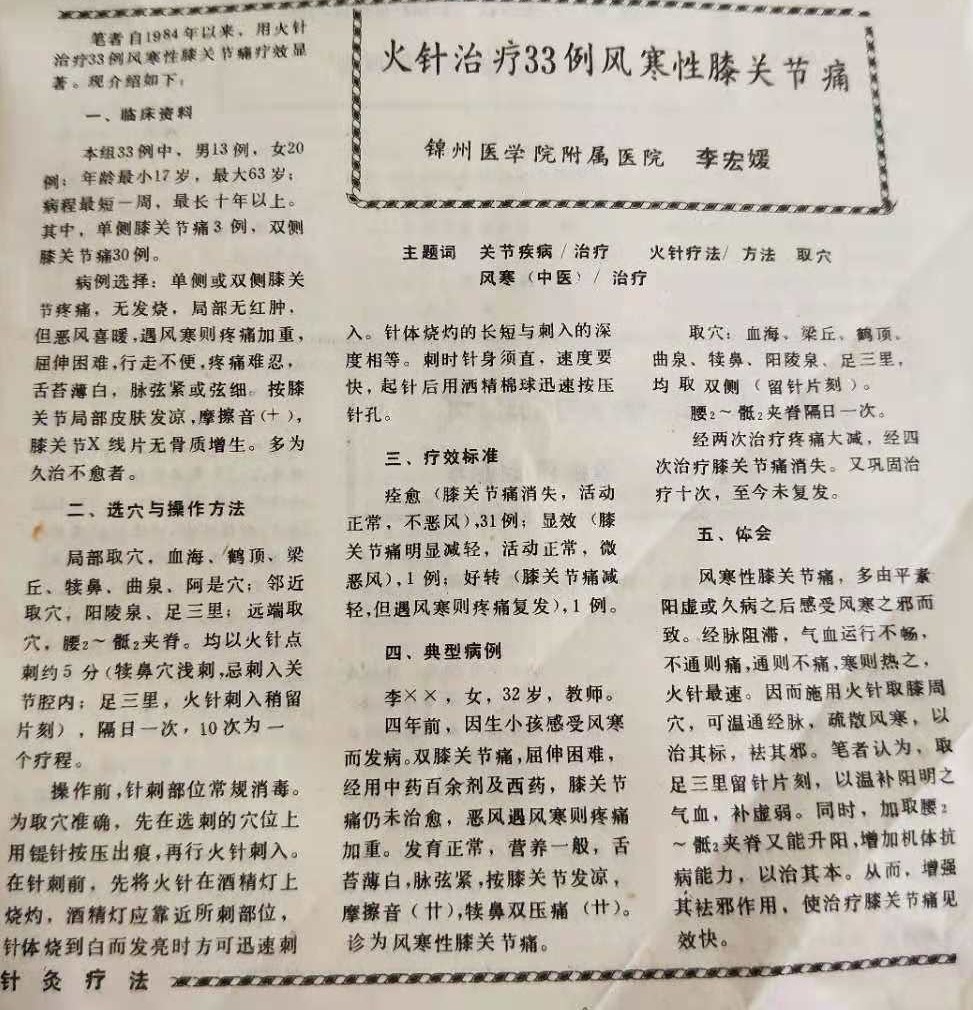 火针治疗33例风寒性膝关节痛
锦州医学院附属医院 李宏媛
主题词 关节疾病/治疗 火针疗法/方法 取穴
风寒（中医）/治疗
笔者自1984年以来，用火针
治疗33例风寒性膝关节痛疗效显
著。现介绍如下：
一、临床资料
本组33例中，男13例，女20
例；年龄最小17岁，最大63岁；
病程最短一周，最长十年以上。
其中，单侧膝关节痛3例，双侧
膝关节痛30例。
病例选择：单侧或双侧膝关
节疼痛，无发烧，局部无红肿，
但恶风喜暖，遇风寒则疼痛加重，
屈伸困难，行走不便，疼痛难忍，
舌苔薄白，脉弦紧或弦细。按膝
关节局部皮肤发凉，摩擦音(＋)，
膝关节X线片无骨质增生。多为
久治不愈者。
二、选穴与操作方法
局部取穴，血海、鹤顶、梁
丘、犊鼻、曲泉、阿是穴；邻近
取穴，阳陵泉、足三里；远端取
穴，腰₂～骶₂夹脊。均以火针点
刺约5分(犊鼻穴浅刺，忌刺入关
节腔内；足三里，火针刺入稍留
片刻)，隔日一次，10次为一
个疗程。
操作前，针刺部位常规消毒。
为取穴准确，先在选刺的穴位上
用鍉针按压出痕，再行火针刺入。
在针刺前，先将火针在酒精灯上
烧灼，酒精灯应靠近所刺部位，
针体烧到白而发亮时方可迅速刺
入。针体烧灼的长短与刺入的深
度相等。刺时针身须直，速度要
快，起针后用酒精棉球迅速按压
针孔。
三、疗效标准
痊愈（膝关节痛消失，活动
正常，不恶风），31例；显效（膝
关节痛明显减轻，活动正常，微
恶风），1例；好转（膝关节痛减
轻，但遇风寒则疼痛复发），1例。
四、典型病例
李××，女，32岁，教师。
四年前，因生小孩感受风寒
而发病。双膝关节痛，屈伸困难，
经用中药百余剂及西药，膝关节
痛仍未治愈，恶风遇风寒则疼痛
加重。发育正常，营养一般，舌
苔薄白，脉弦紧，按膝关节发凉，
摩擦音（卄），犊鼻双压痛（卄）。
诊为风寒性膝关节痛。
取穴：血海、梁丘、鹤顶、
曲泉、犊鼻、阳陵泉、足三里，
均取双侧（留针片刻）。
腰₂～骶₂夹脊隔日一次。
经两次治疗疼痛大减，经四
次治疗膝关节痛消失。又巩固治
疗十次，至今未复发。
五、体会
风寒性膝关节痛，多由平素
阳虚或久病之后感受风寒之邪而
致。经脉阻滞，气血运行不畅，
不通则痛，通则不痛，寒则热之，
火针最速。因而施用火针取膝周
穴，可温通经脉，疏散风寒，以
治其标，祛其邪。笔者认为，取
足三里留针片刻，以温补阳明之
气血，补虚弱。同时，加取腰₂
～骶₂夹脊又能升阳，增加机体抗
病能力，以治其本。从而，增强
其祛邪作用，使治疗膝关节痛见
效快。
针灸疗法